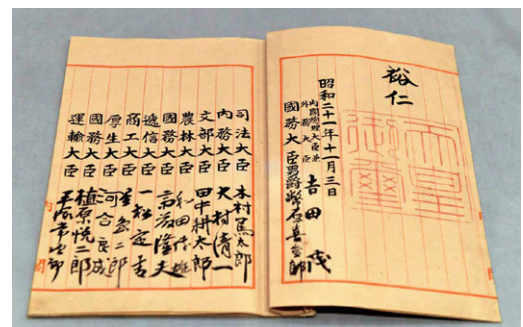 裕仁
天皇
御璽
昭和二十一年十一月三日
内閣總理大臣兼
外務大臣 吉田茂
國務大臣男爵幣原喜重郎
司法大臣 木村篤太郎
内務大臣 大村清一
文部大臣 田中耕太郎
農林大臣 和田博雄
國務大臣 斎藤隆夫
遞信大臣 一松定吉
商工大臣 星島二郎
厚生大臣 河合良成
國務大臣 植原悦二郎
運輸大臣 平塚常次郎